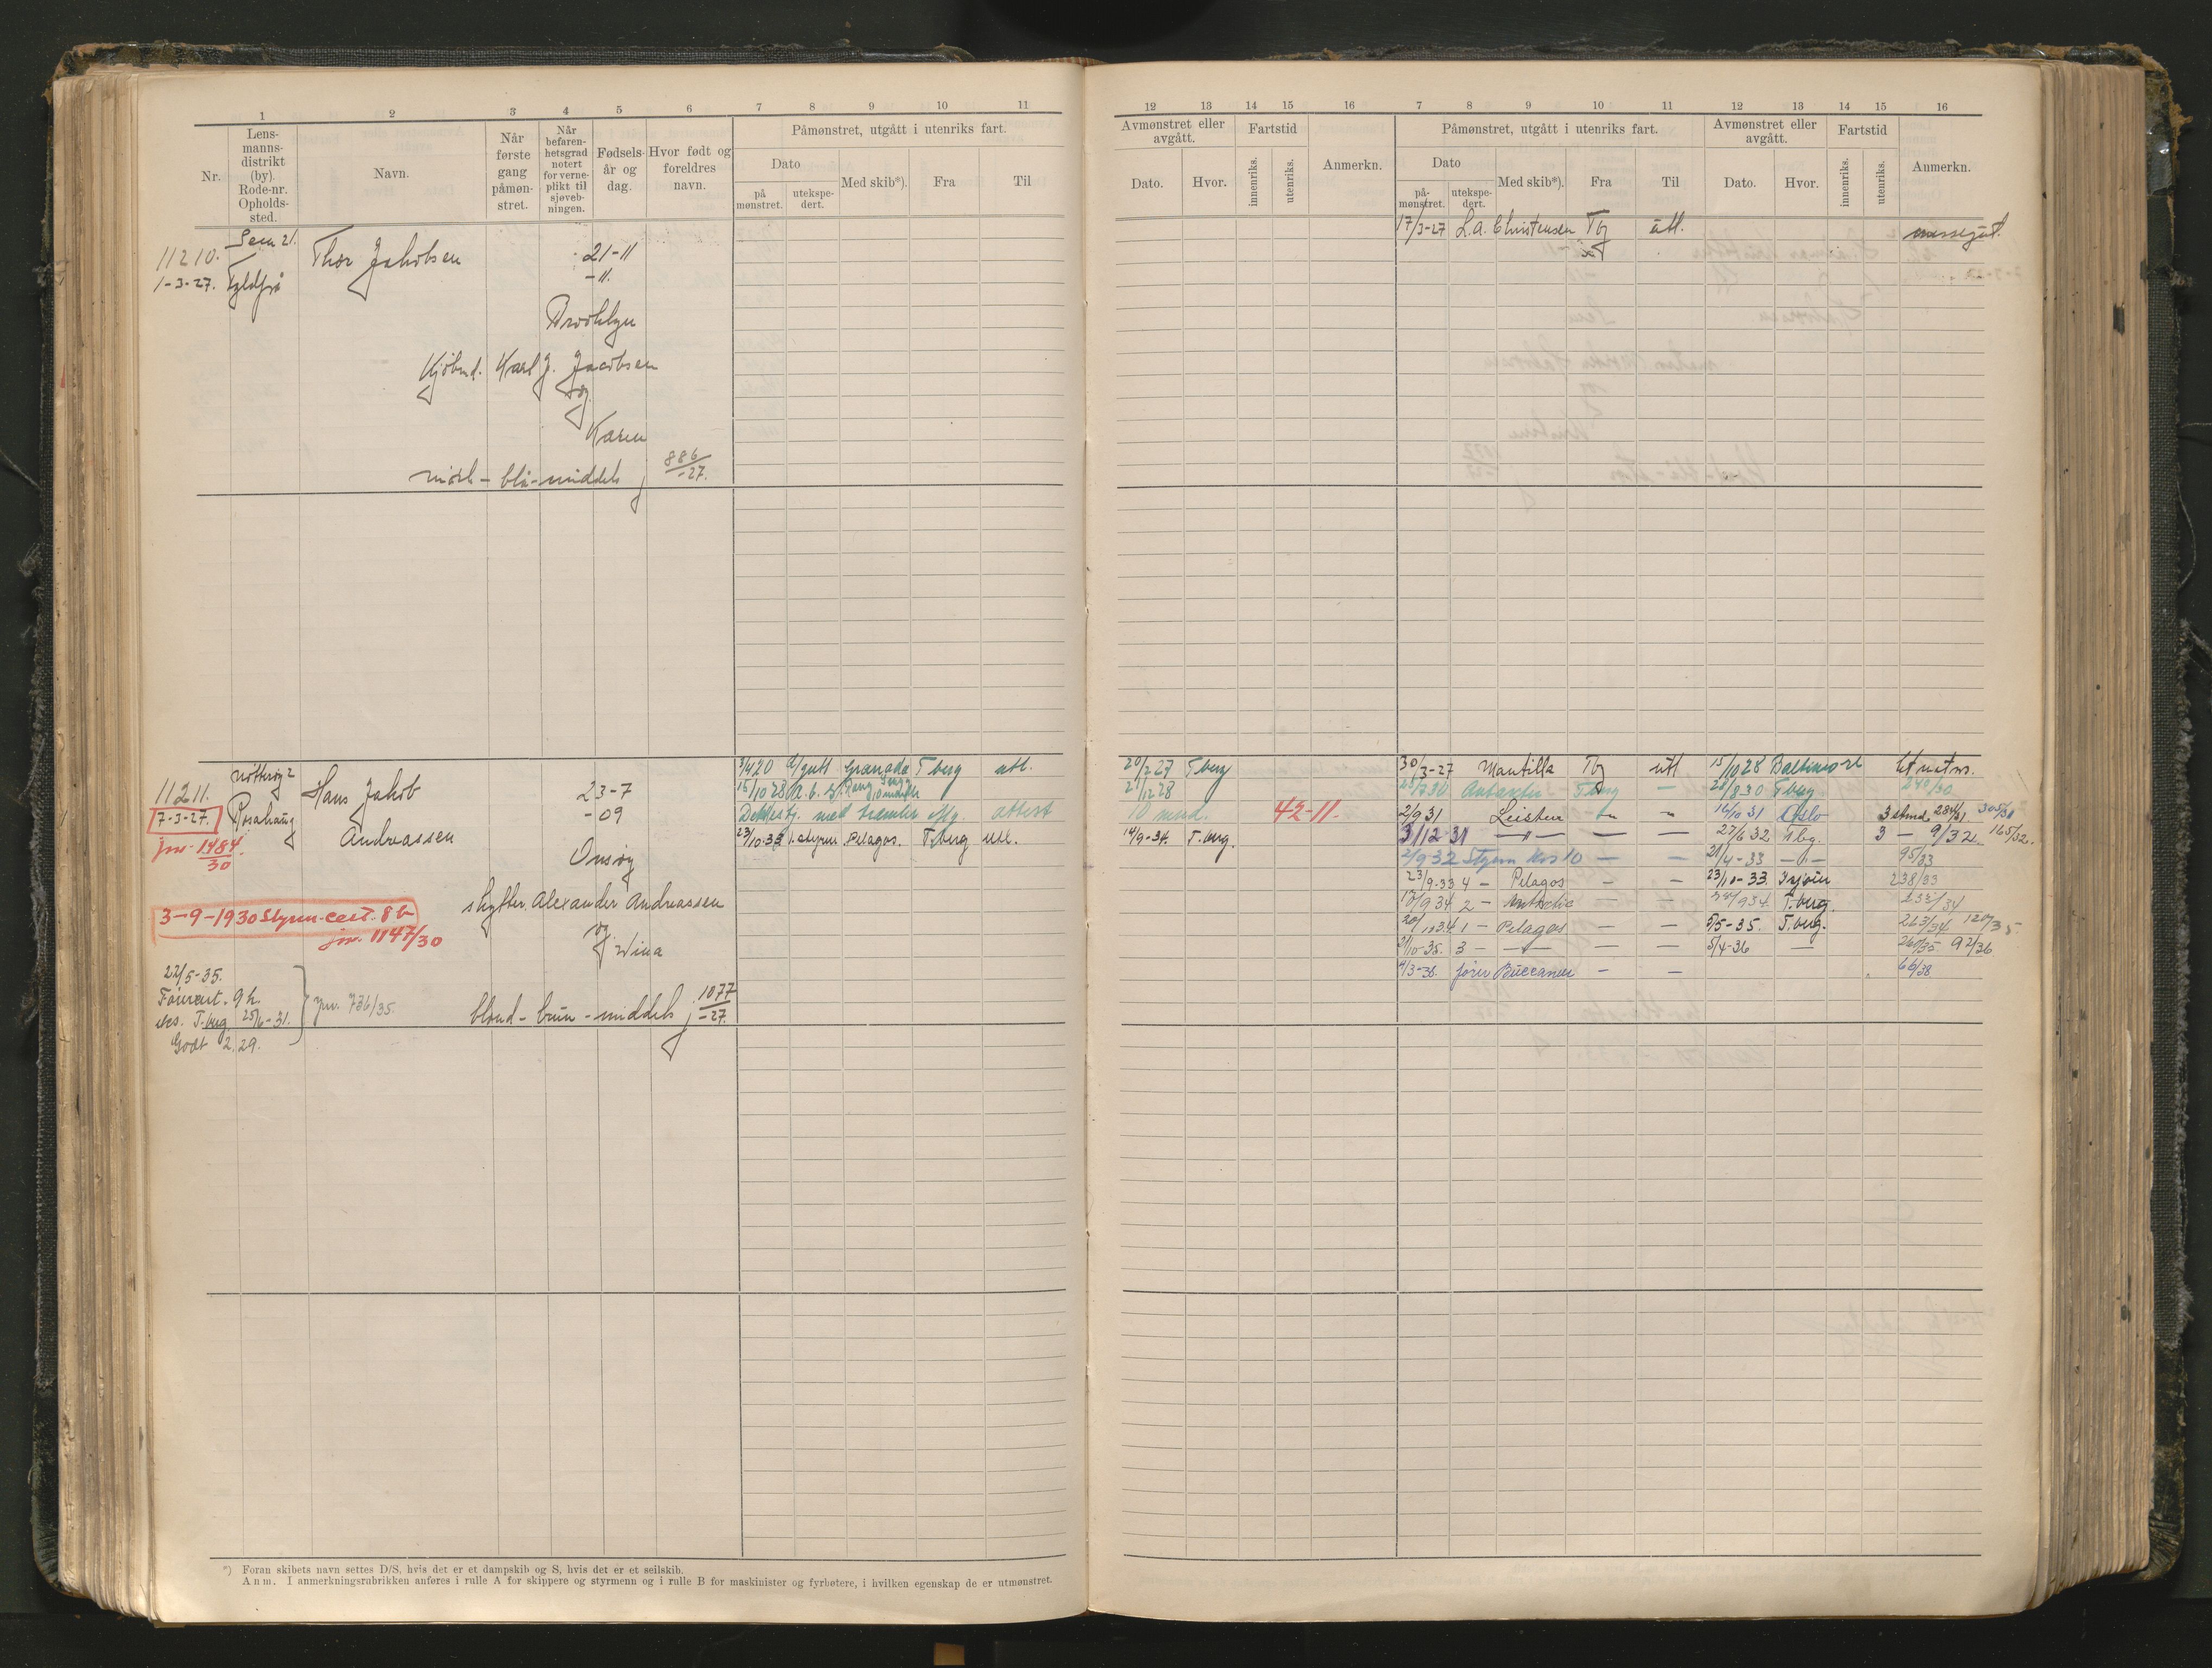 1 2 3 4 5 6 7 8 9 10 11
Nr.
Lens-
manns-
distrikt
(by).
Rode-nr.
Opholds-
sted.
Navn.
Når
første
gang
påmøn-
stret.
Når
befaren-
hetsgrad
notert
for verne-
plikt til
sjøveb-
ningen.
Fødsels-
år og
dag.
Hvor født og
foreldres
navn.
Påmønstret, utgått i utenriks fart.
Dato
på
mønstret.
utekspe-
dert.
Med skib*).
Fra
Til
11210. Sem 21. Thor Jakobsen 21-11
1-3-27. -11.
Brooklyn
Kjøbmd. Karl J. Jacobsen
og
Karen
mørk - blå - middels 886/-27.
11211. Nøtterøy 2 Hans Jakob 23-7
7-3-27. Rosahaug Andreassen -09
jnr. 1484/30
Onsøy
skytter Alexander Andreassen
og
Wina
3-9-1930 Styrm-cert. 8 b
jnr. 1147/30
blond - brun - middels 1077/-27.
22/5-35.
9 h. jnr. 736/35.
T.berg 25/6-31.
Godt 2.29.
3/4 20 d/gutt Granada T berg utl.
15/10 28
Dekkestj. med attest
23/10-33 1. styrm. Pelagos. T.berg utl.
*) Foran skibets navn settes D/S, hvis det er et dampskib og S, hvis det er et seilskib.
Anm. I anmerkningsrubrikken anføres i rulle A for skippere og styrmenn og i rulle B for maskinister og fyrbøtere, i hvilken egenskap de er utmønstret.
12 13 14 15 16 7 8 9 10 11 12 13 14 15 16
Avmønstret eller
avgått.
Dato.
Hvor.
Fartstid
innenriks.
utenriks.
Anmerkn.
Påmønstret, utgått i utenriks fart.
Dato
på-
mønstret.
utekspe-
dert.
Med skib*).
Fra
Til
Avmønstret eller
avgått.
Dato.
Hvor.
Fartstid
innenriks.
utenriks.
Anmerkn.
17/3-27 L.A. Christensen Tbg utl. messegut.
20/2 27 T berg 30/3-27 Mantilla Tbg utl 15/10 28 Baltimore
21/12 28 T berg — 28/8 30 T berg 240/30
10 mnd. 42-11. 2/9 31 Leister 16/10 31 Oslo 3 stmd 284/31 305/31
14/9-34. T.berg. 3/12 31 — — — 27/6 32 Tbg. 3 — 9/32 165/32.
2/9 32 Styrm Kos 10 — — 21/4-33 — 95/33
23/9-33 4 — Pelagos — — 23/10-33. 238/33
2 — — — T.berg. 232/34
1 — Pelagos — — 5/5-35. T.berg. 263/34 120/35
21/10-35. 3 — — — — 5/4-36 — 260/35 92/36
4/3-38. Buccaneer — — 66/38